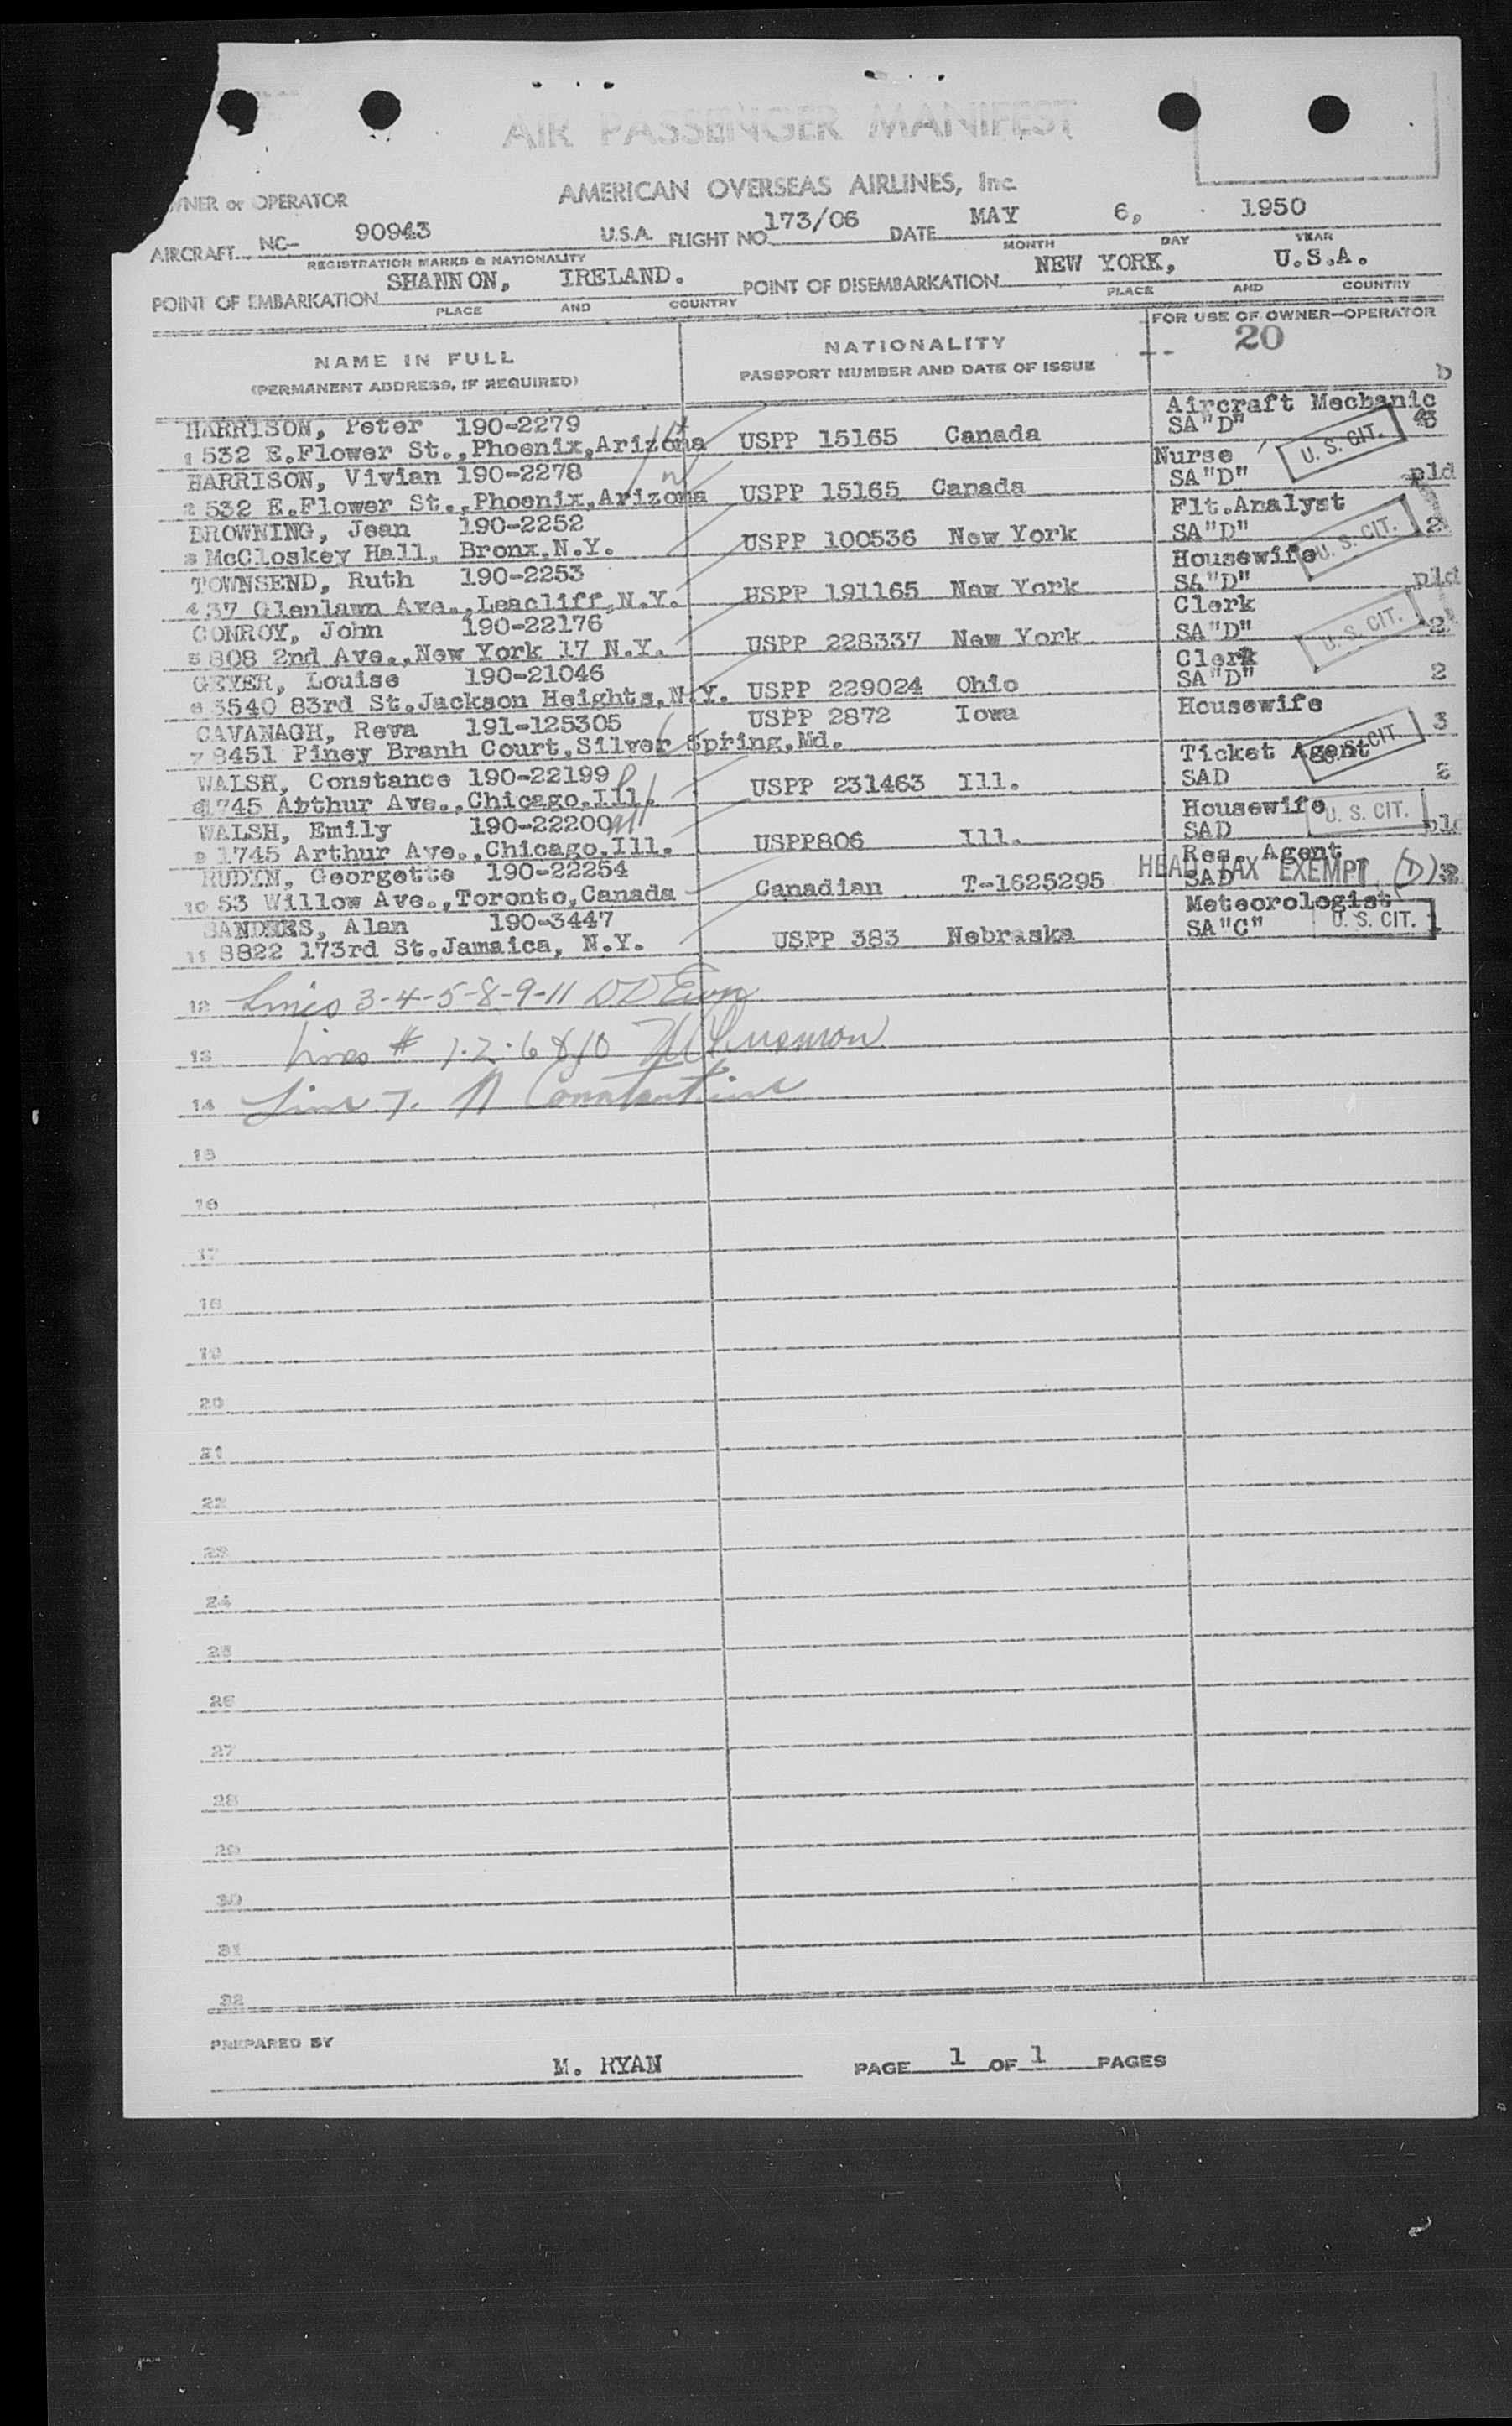 AIR PASSENGER MANIFEST
AMERICAN OVERSEAS AIRLINES, Inc.
NER or OPERATOR
AIRCRAFT NC- 90943 U.S.A. FLIGHT NO. 173/06 DATE MAY 6, 1950
REGISTRATION MARKS & NATIONALITY MONTH DAY YEAR
POINT OF EMBARKATION SHANNON, IRELAND. POINT OF DISEMBARKATION NEW YORK, U.S.A.
PLACE AND COUNTRY PLACE AND COUNTRY
FOR USE OF OWNER-OPERATOR
NAME IN FULL NATIONALITY 20
(PERMANENT ADDRESS, IF REQUIRED) PASSPORT NUMBER AND DATE OF ISSUE b
HARRISON, Peter 190-2279 Aircraft Mechanic
1 532 E.Flower St.,Phoenix,Arizona USPP 15165 Canada SA"D" U. S. CIT. 3
HARRISON, Vivian 190-2278 Nurse
2 532 E.Flower St.,Phoenix,Arizona USPP 15165 Canada SA"D" pld
BROWNING, Jean 190-2252 Flt.Analyst
3 McCloskey Hall, Bronx,N.Y. USPP 100536 New York SA"D" U. S. CIT. 2
TOWNSEND, Ruth 190-2253 Housewife
4 37 Glenlawn Ave.,Leacliff,N.Y. USPP 191165 New York SA"D" pld
CONROY, John 190-22176 Clerk
5 808 2nd Ave.,New York 17 N.Y. USPP 228337 New York SA"D" U. S. CIT. 2
GEYER, Louise 190-21046 Clerk
6 3540 83rd St.Jackson Heights,N.Y. USPP 229024 Ohio SA"D" 2
CAVANAGH, Reva 191-125305 USPP 2872 Iowa Housewife
7 8451 Piney Branh Court,Silver Spring,Md. U. S. CIT. 3
WALSH, Constance 190-22199 Ticket Agent
1745 Abthur Ave.,Chicago,Ill. USPP 231463 Ill. SAD 2
WALSH, Emily 190-22200 Housewife U. S. CIT.
9 1745 Arthur Ave.,Chicago,Ill. USPP806 Ill. SAD pld
RUDIN, Georgette 190-22254 Res. Agent
10 53 Willow Ave.,Toronto,Canada Canadian T-1625295 SAD HEAD TAX EXEMPT (D)
SANDERS, Alan 190-3447 Meteorologist
11 8822 173rd St.Jamaica, N.Y. USPP 383 Nebraska SA"C" U. S. CIT. 1
12 Lines 3-4-5-8-9-11
13 Lines # 1.2.6 & 10
14 Line 7. Constantine
15
16
17
18
19
20
21
22
23
24
25
26
27
28
29
30
31
32
PREPARED BY
M. RYAN PAGE 1 OF 1 PAGES